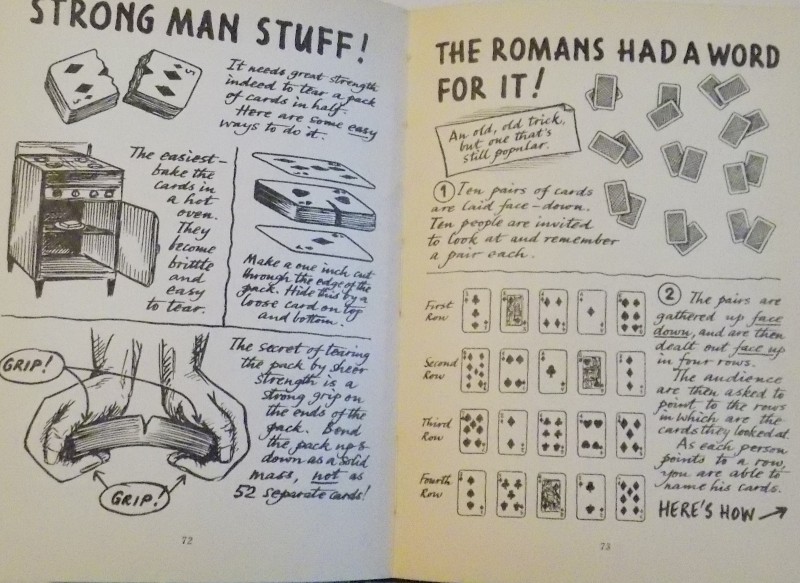 STRONG MAN STUFF!
It needs great strength
indeed to tear a pack
of cards in half.
Here are some easy
ways to do it.
The easiest –
bake the
cards in
a hot
oven.
They
become
brittle
and
easy
to tear.
Make a one inch cut
through the edge of the
pack. Hide this by a
loose card on top
and bottom.
GRIP!
The secret of tearing
the pack by sheer
strength is a
strong grip on
the ends of the
pack. Bend
the pack up &
down as a solid
mass, not as
52 separate cards!
GRIP!
72
THE ROMANS HAD A WORD
FOR IT!
An old, old trick,
but one that's
still popular.
① Ten pairs of cards
are laid face-down.
Ten people are invited
to look at and remember
a pair each.
First
Row
Second
Row
Third
Row
Fourth
Row
② The pairs are
gathered up face
down, and are then
dealt out face up
in four rows.
The audience
are then asked to
point to the rows
in which are the
cards they looked at.
As each person
points to a row,
you are able to
name his cards.
HERE'S HOW
73